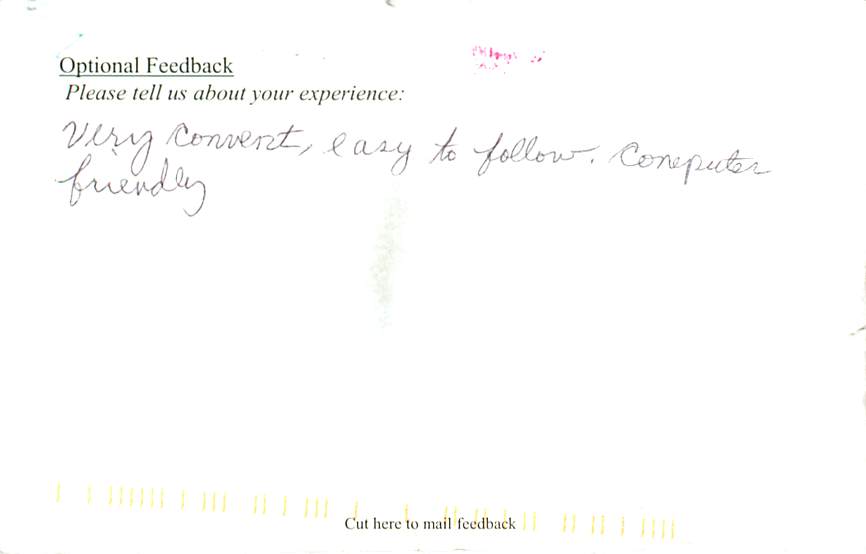 Optional Feedback
Please tell us about your experience:
Very convent, easy to follow. Computer
friendly
Cut here to mail feedback